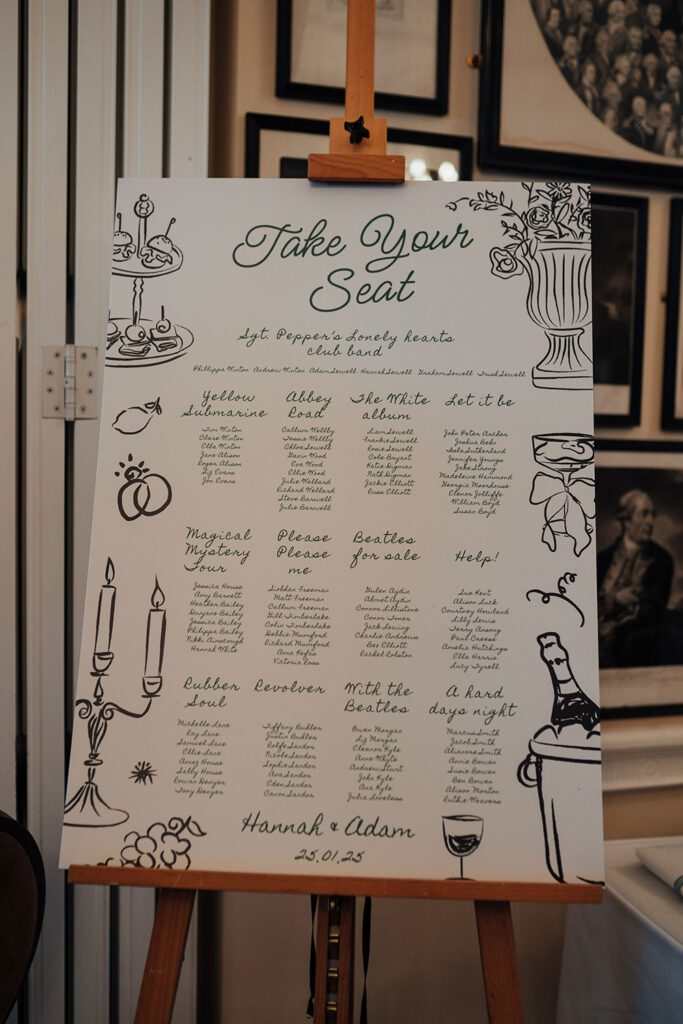 Take Your
Seat
Sgt. Pepper's Lonely hearts
club band
Phillippa Winton Andrew Winton Adam Sewell Hannah Sewell Graham Sewell Sewell
Yellow
Submarine
Tim Winton
Clare Winton
Ella Winton
Jane Alison
Roger Alison
Liz Evans
Jon Evans
Abbey
Road
Callum Wellby
Jessie Wellby
Chloe Sewell
Gavin Wood
Eva Wood
Ellie Wood
Julie Wellard
Richard Wellard
Steve Barwell
Julie Barwell
The White
album
Liam Sewell
Frankie Sewell
Rosie Sewell
Cole Bryant
Katie Digman
Nath Digman
Jackie Elliott
Russ Elliott
Let it be
John Peter Archer
Joshua Behr
Isla Sutherland
Jennifer Younge
Jake Strong
Madeleine Hammond
Georgia Moorhouse
Elenor Jolliffe
William Boyd
Susan Boyd
Magical
Mystery
Tour
Jessica House
Amy Barnett
Heather Bailey
Dwyane Bailey
Jessica Bailey
Philippa Bailey
Nikki Ainscough
Hannah White
Please
Please
me
Siobhan Freeman
Matt Freeman
Callum Freeman
Gill Timberlake
Colin Timberlake
Debbie Mumford
Richard Mumford
Ama
Victoria Rose
Beatles
for sale
Gulen Aydin
Ahmet Aydin
Connor
Conor Toner
Jack Lewing
Charlie Andrews
Bec Elliott
Rachel Robston
Help!
Sue Kent
Alison Luck
Courtney Howland
Lilly Lewis
Terry Ansong
Paul Creese
Amelia Hutchings
Ella Harris
Lucy Tyrell
Rubber
Soul
Michelle Lane
Ray Lane
Samuel Lane
Ellie Lane
Amoz House
Sally House
Rowan Denyer
Tony Denyer
Revolver
Tiffany Buhler
Justin Buhler
Rolfe Sandor
Nicole Sandor
Sophie Sandor
Ava Sandor
Eden Sandor
Canon Sandor
With the
Beatles
Owen Morgan
Liz Morgan
Eleanor Kyle
Anne Whyte
Andrew Sturt
John Kyle
Ana Kyle
Julia Loveless
A hard
days night
Marcus Smith
Jacob Smith
Abianne Smith
Annie Bowen
Susie Bowen
Ben Bowen
Alison Morton
Ruthie Weavers
Hannah & Adam
25.01.25